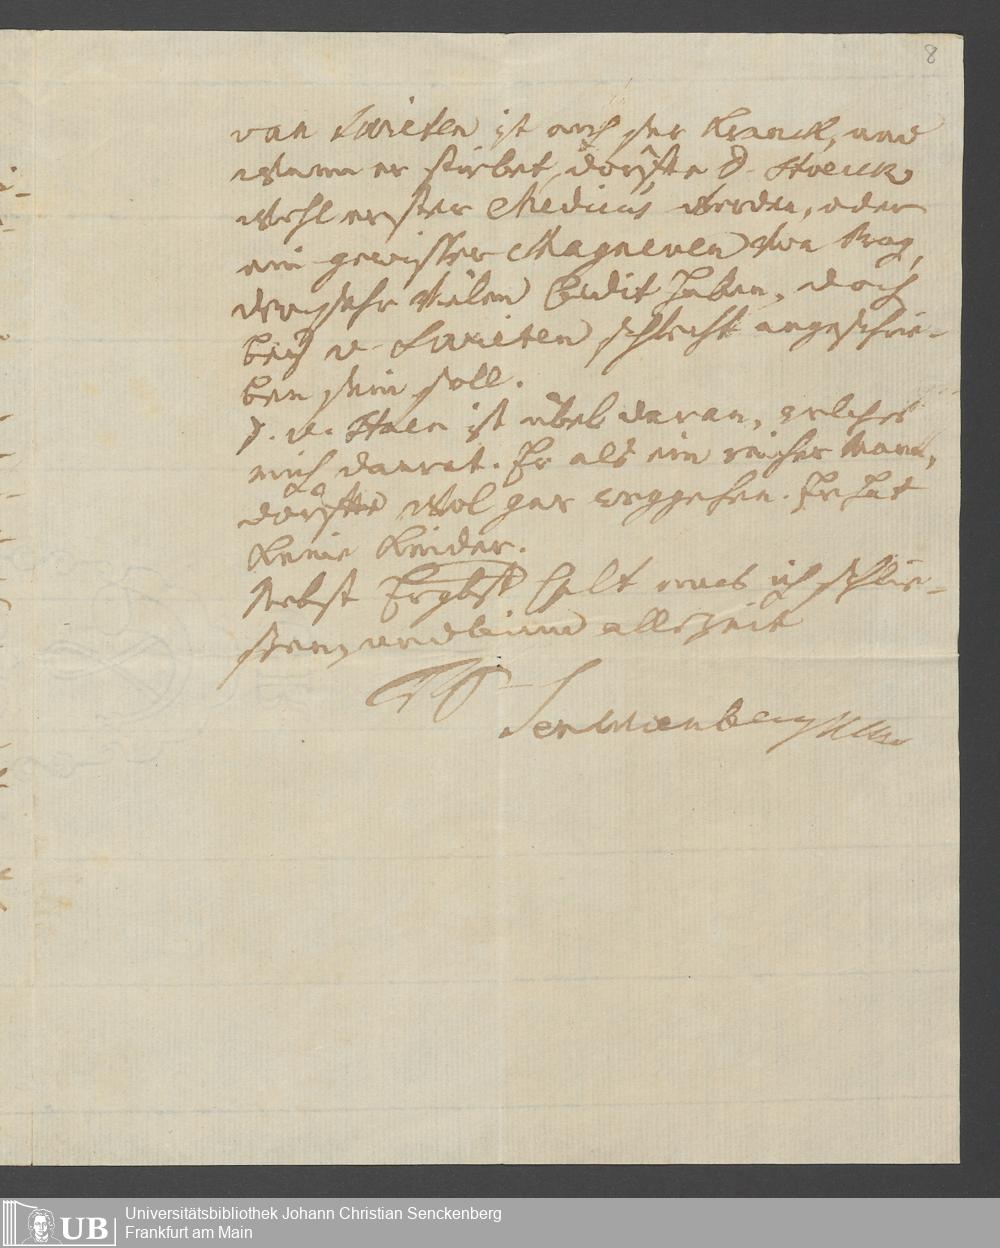 8
van Swieten ist auch sehr Kranck, und
Wann er stirbet, dörffte D. Stoerck
Wohl erster Medicus werden, oder
ein gewisser Magneven Von Prag,
der sehr Vielen Credit haben, doch
bey v. Swieten schlecht angeschrie-
ben sein soll.
D. v. Haen ist übel daran, welches
mich dauret. Er als ein reicher Mann,
dörffte Wol gar weggehen. Er hat
keine Kinder.
Nebst Ergbst was ich schlie-
ssen, und bin allezeit
Senckenberg
Universitätsbibliothek Johann Christian Senckenberg
UB Frankfurt am Main